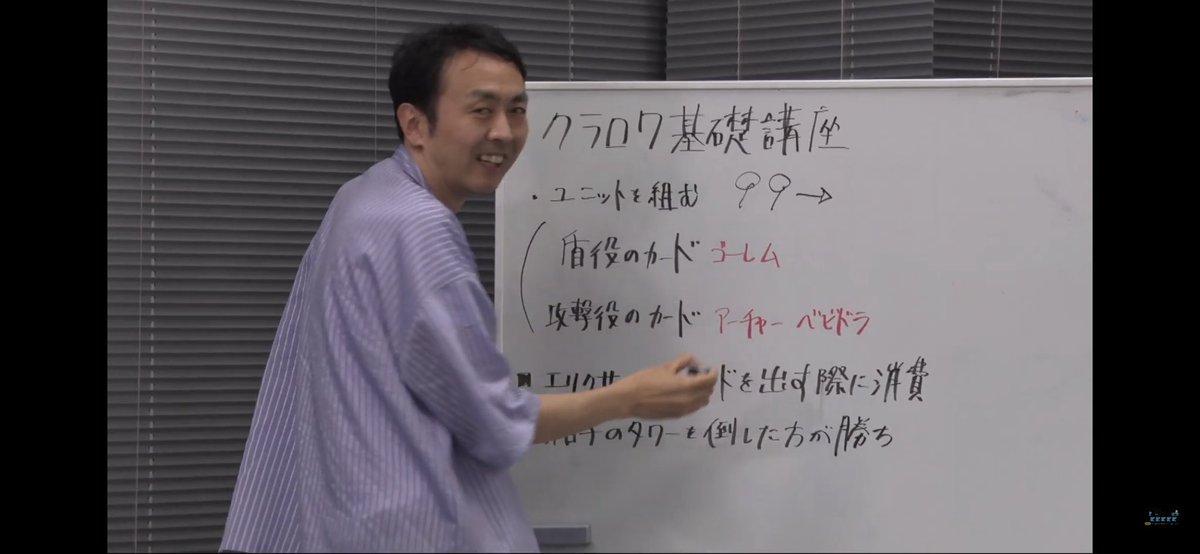 クラロワ基礎講座
・ユニットを組む →
盾役のカード ゴーレム
攻撃役のカード アーチャー ベビドラ
エリクサ ドを出す際に消費
のタワーを倒した方が勝ち